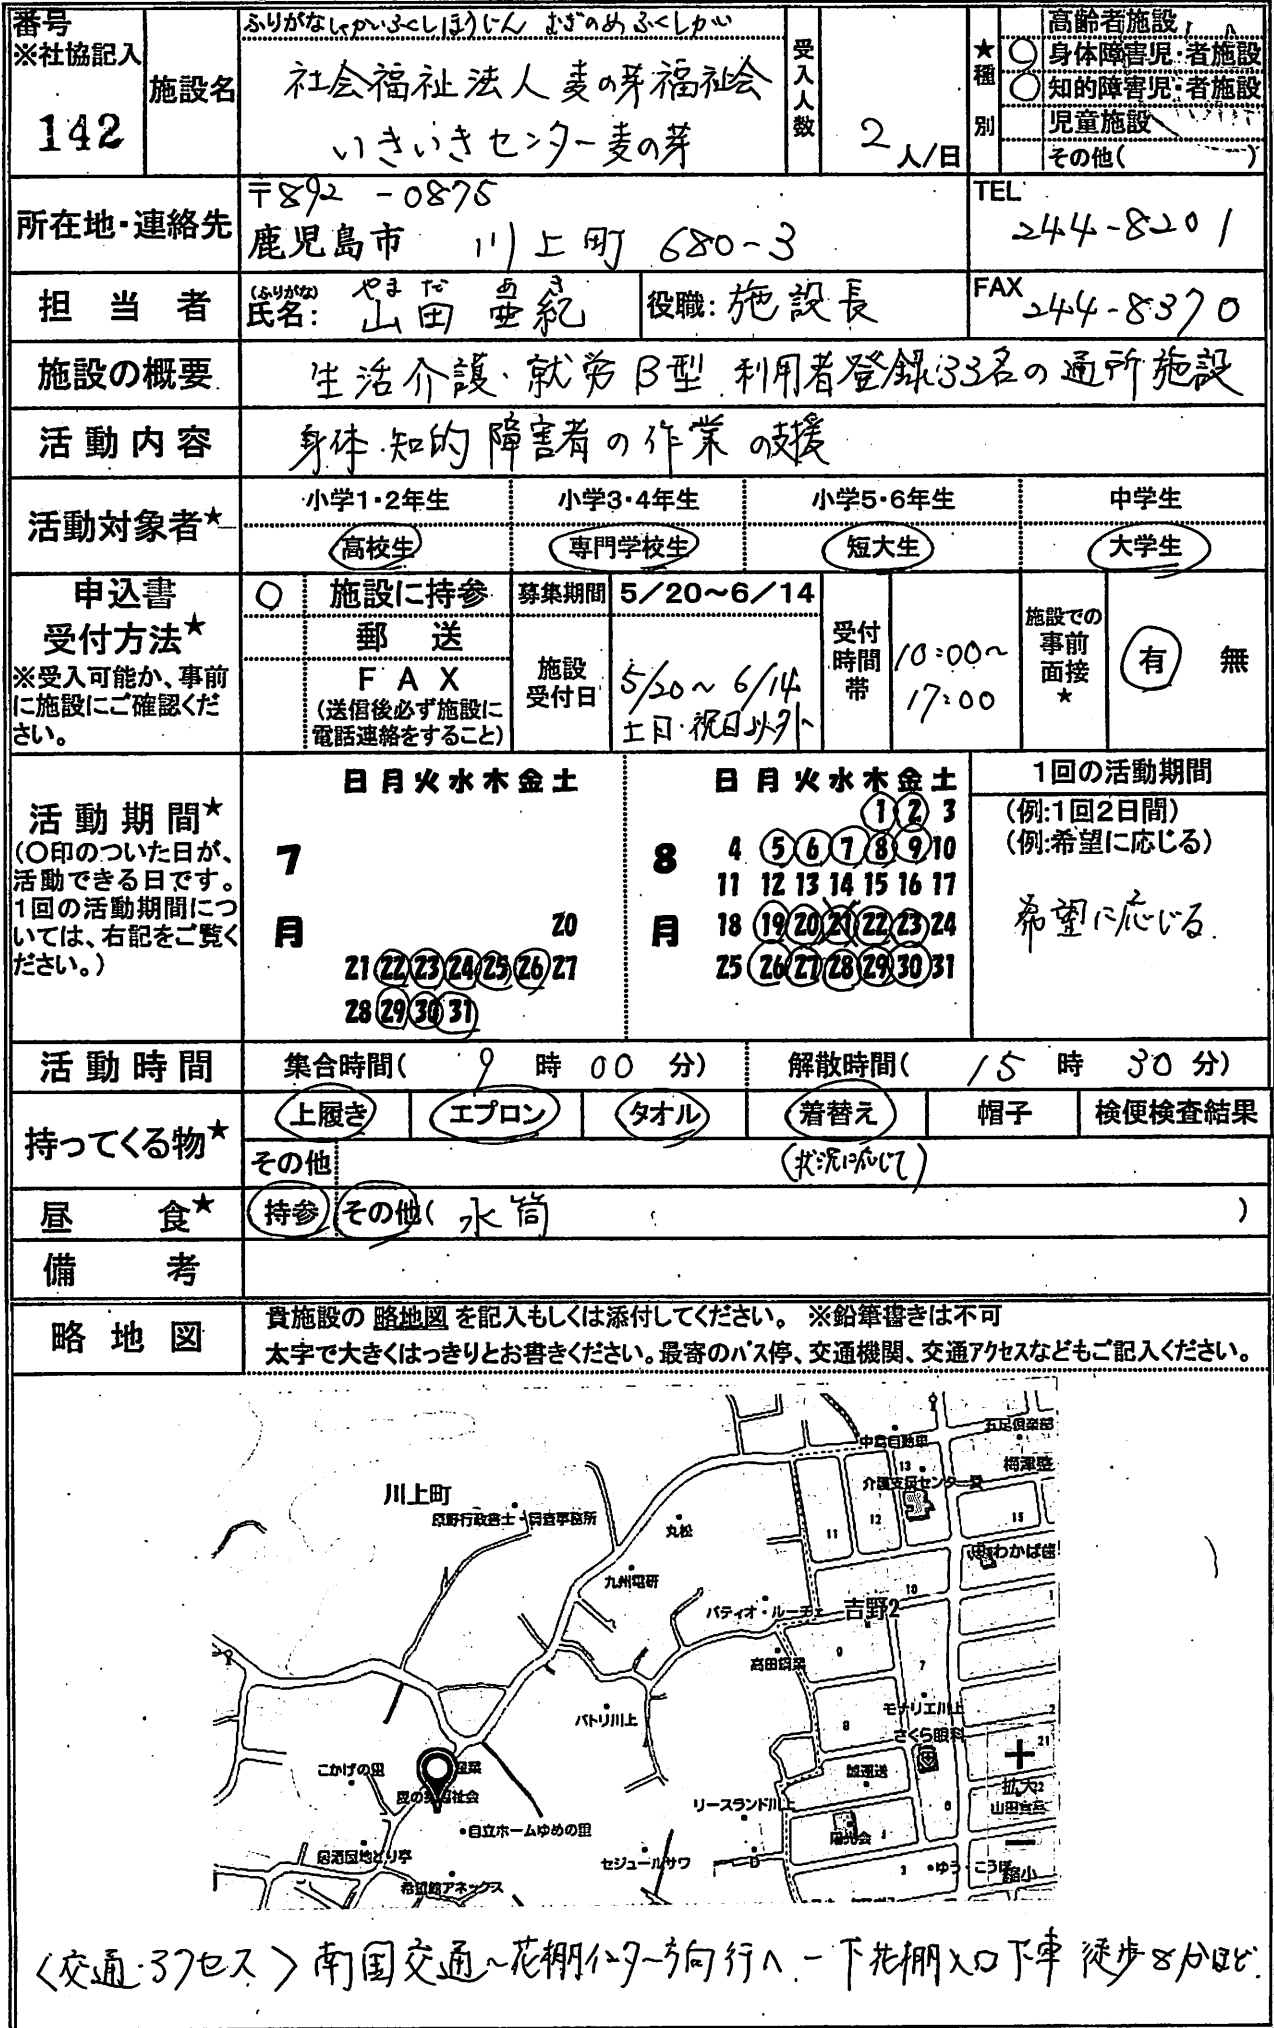 番号
※社協記入
142
施設名
ふりがな しゃかいふくしほうじん むぎのめふくしかい
社会福祉法人 麦の芽福祉会
いきいきセンター麦の芽
受入人数
2 人/日
★種別
高齢者施設
○ 身体障害児・者施設
○ 知的障害児・者施設
児童施設
その他( )
所在地・連絡先
〒892-0875
鹿児島市 川上町 680-3
TEL
244-8201
担当者
(ふりがな) やまだ あき
氏名: 山田 亜紀
役職: 施設長
FAX 244-8370
施設の概要
生活介護・就労B型 利用者登録33名の通所施設
活動内容
身体・知的障害者の作業の支援
活動対象者★
小学1・2年生 小学3・4年生 小学5・6年生 中学生
高校生 専門学校生 短大生 大学生
申込書
受付方法★
※受入可能か、事前
に施設にご確認くだ
さい。
○ 施設に持参
郵送
FAX
(送信後必ず施設に
電話連絡をすること)
募集期間 5/20~6/14
施設
受付日
5/20~6/14
土日・祝日以外
受付
時間
帯
10:00~
17:00
施設での
事前
面接
★
有 無
活動期間★
(○印のついた日が、
活動できる日です。
1回の活動期間につ
いては、右記をご覧く
ださい。)
7月
日月火水木金土
20
21 22 23 24 25 26 27
28 29 30 31
8月
日月火水木金土
1 2 3
4 5 6 7 8 9 10
11 12 13 14 15 16 17
18 19 20 21 22 23 24
25 26 27 28 29 30 31
1回の活動期間
(例:1回2日間)
(例:希望に応じる)
希望に応じる
活動時間
集合時間( 9 時 00 分)
解散時間( 15 時 30 分)
持ってくる物★
上履き エプロン タオル 着替え 帽子 検便検査結果
その他
(状況に応じて)
昼食★
持参 その他( 水筒 )
備考
略地図
貴施設の 略地図 を記入もしくは添付してください。 ※鉛筆書きは不可
太字で大きくはっきりとお書きください。最寄のバス停、交通機関、交通アクセスなどもご記入ください。
中島自動車
五足倶楽部
13
川上町
丸松
12
11
15
わかば歯
九州電研
10
パティオ・ルーチェ
吉野2
高田鋼業
9
7
パトリ川上
モナリエ川上
8
さくら眼科
21
こかげの里
拡大
リースランド川上
6
陽光会
自立ホームゆめの里
セジュールサワ
3
ゆう・こうぼ
縮小
希望館アネックス
〈交通・アクセス〉南国交通~花棚インター方向行へ-下花棚入口下車 徒歩8分ほど.